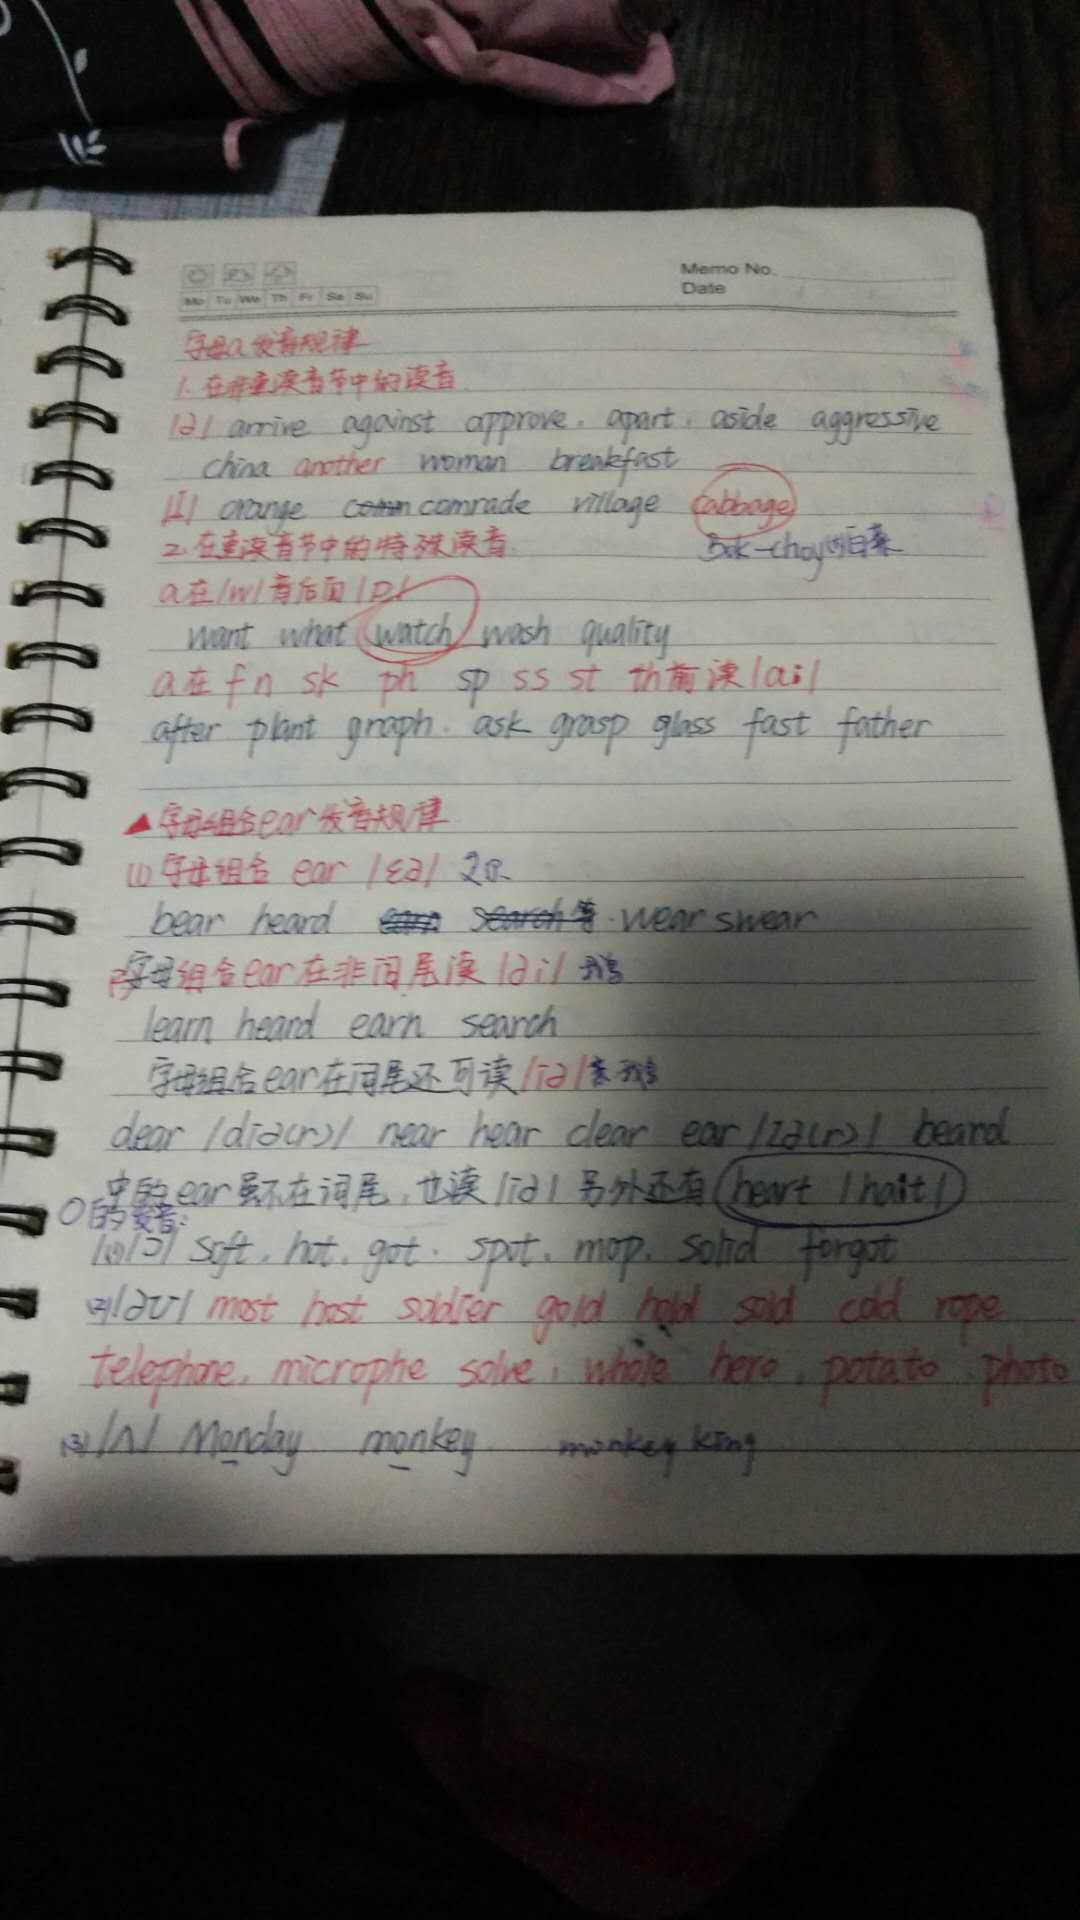 Memo No.
Date
Mo Tu We Th Fr Sa Su
字母a发音规律
1. 在非重读音节中的读音
/ə/ arrive against approve. apart. aside aggressive
china another woman breakfast
/I/ orange comrade village cabbage
2. 在重读音节中的特殊读音
Bok-choy 白菜
a在/w/音后面/ɒ/
want what watch wash quality
a在 f n sk ph sp ss st th前读/ai/
after plant graph. ask grasp glass fast father
▲字母组合ear发音规律
(1) 字母组合 ear /ɛə/
bear heard earn search等. wear swear
字母组合ear在非词尾读 /əi/
learn heard earn search
字母组合ear在词尾还可读/iə/
dear /diə(r)/ near hear clear ear /Iə(r)/ beard
中的ear虽不在词尾, 也读/iə/ 另外还有 heart /hait/
O的发音:
(1)/ɔ/ soft. hot. got. spot. mop. solid forgot
(2)/əʊ/ most host soldier gold hold sold cold rope
telephone. microphe solve. whole hero. potato. photo
(3)/ʌ/ Monday monkey monkey king